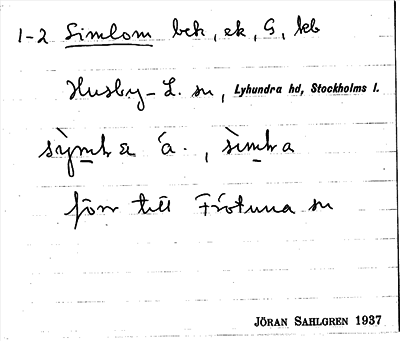 1-2 Simlom bek, ek, G, kb
Husby-L. sn, Lyhundra hd, Stockholms l.
sỳmla a., sìmla
förr till Frötuna sn
JÖRAN SAHLGREN 1937